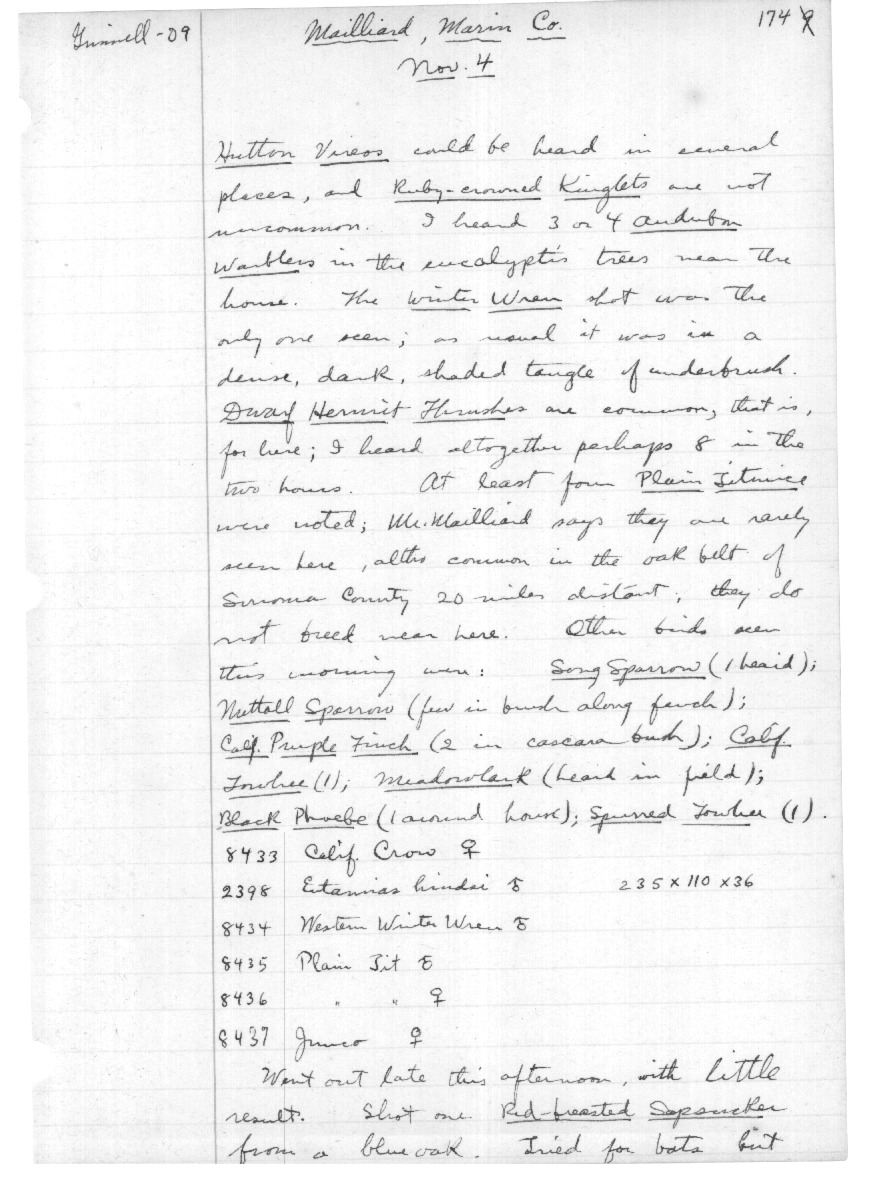 Grinnell-09
Mailliard, Marin Co.
174
Nov. 4
Hutton Vireos could be heard in several
places, and Ruby-crowned Kinglets are not
uncommon. I heard 3 or 4 Audubon
Warblers in the eucalyptis trees near the
house. The Winter Wren shot was the
only one seen; as usual it was in a
dense, dark, shaded tangle of underbrush.
Dwarf Hermit Thrushes are common, that is,
for here; I heard altogether perhaps 8 in the
two hours. At least four Plain Titmice
were noted; Mr. Mailliard says they are rarely
seen here, altho common in the oak belt of
Sonoma County 20 miles distant; they do
not breed near here. Other birds seen
this morning were: Song Sparrow (1 heard);
Nuttall Sparrow (few in brush along fench);
Calif. Purple Finch (2 in cascara bush); Calif.
Towhee (1); Meadowlark (heard in field);
Black Phoebe (1 around house); Spurred Towhee (1).
8433 Calif. Crow ♀
2398 Eutamias hindsi ♂ 235 x 110 x 36
8434 Western Winter Wren ♂
8435 Plain Tit ♂
8436 " " ♀
8437 Junco ♀
Went out late this afternoon, with little
result. Shot one Red-breasted Sapsucker
from a blue oak. Tried for bats but